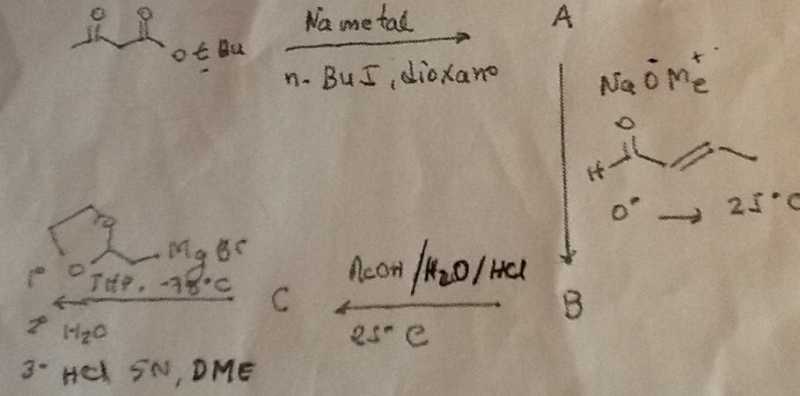 O O
O t Bu
Na metal
n-BuI, dioxano
A
NaOMe
- +
O
H
0° → 25°C
B
AcOH/H2O/HCl
25°C
C
O
O MgBr
1° THF, -78°C
2° H2O
3- HCl 5N, DME